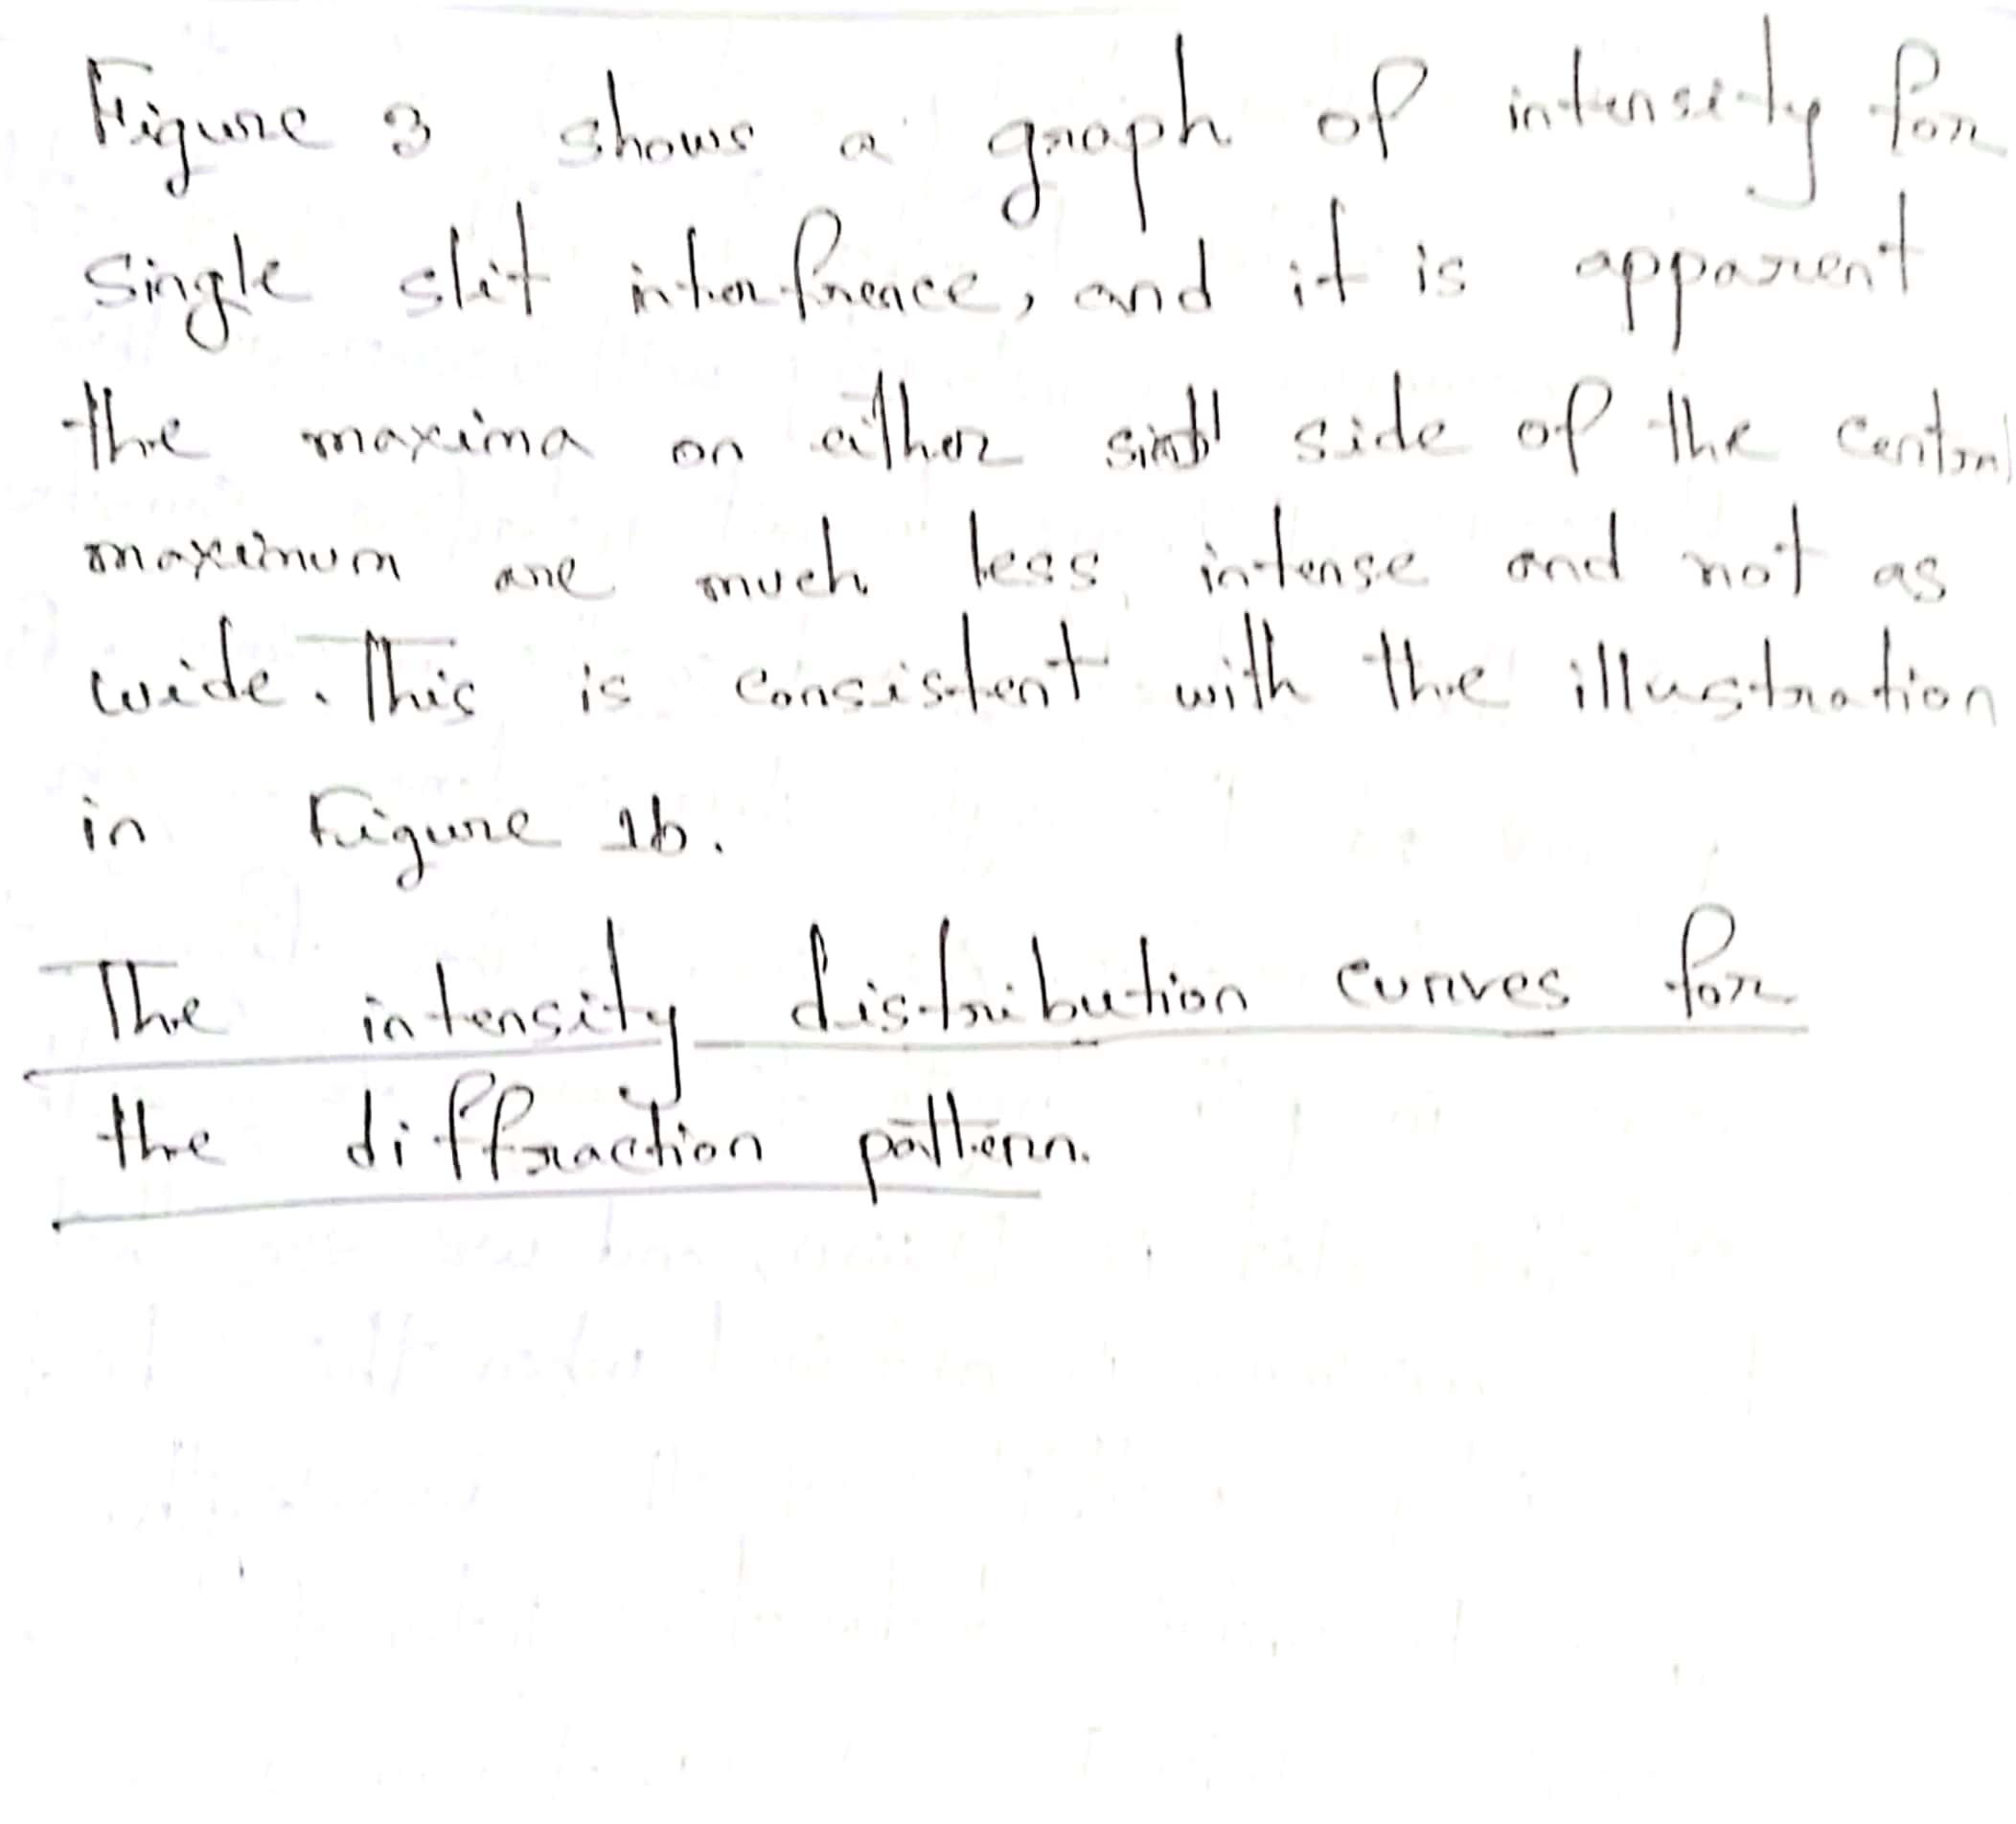 Figure 3 shows a graph of intensity for
Single slit interfrence, and it is apparent
the maxima on either side of the central
maximum are much less intense and not as
wide. This is consistent with the illustration
in Figure 1b.
The intensity distribution curves for
the diffraction pattern.